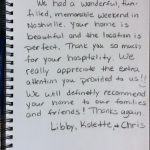 We had a wonderful, fun-
filled, memorable weekend in
Nashville. Your home is
beautiful and the location is
perfect. Thank you so much
for your hospitality. We
really appreciate the extra
attention you provided to us!!
We will definitely recommend
your home to our families
and friends! Thanks again
Libby, Kolette, + Chris